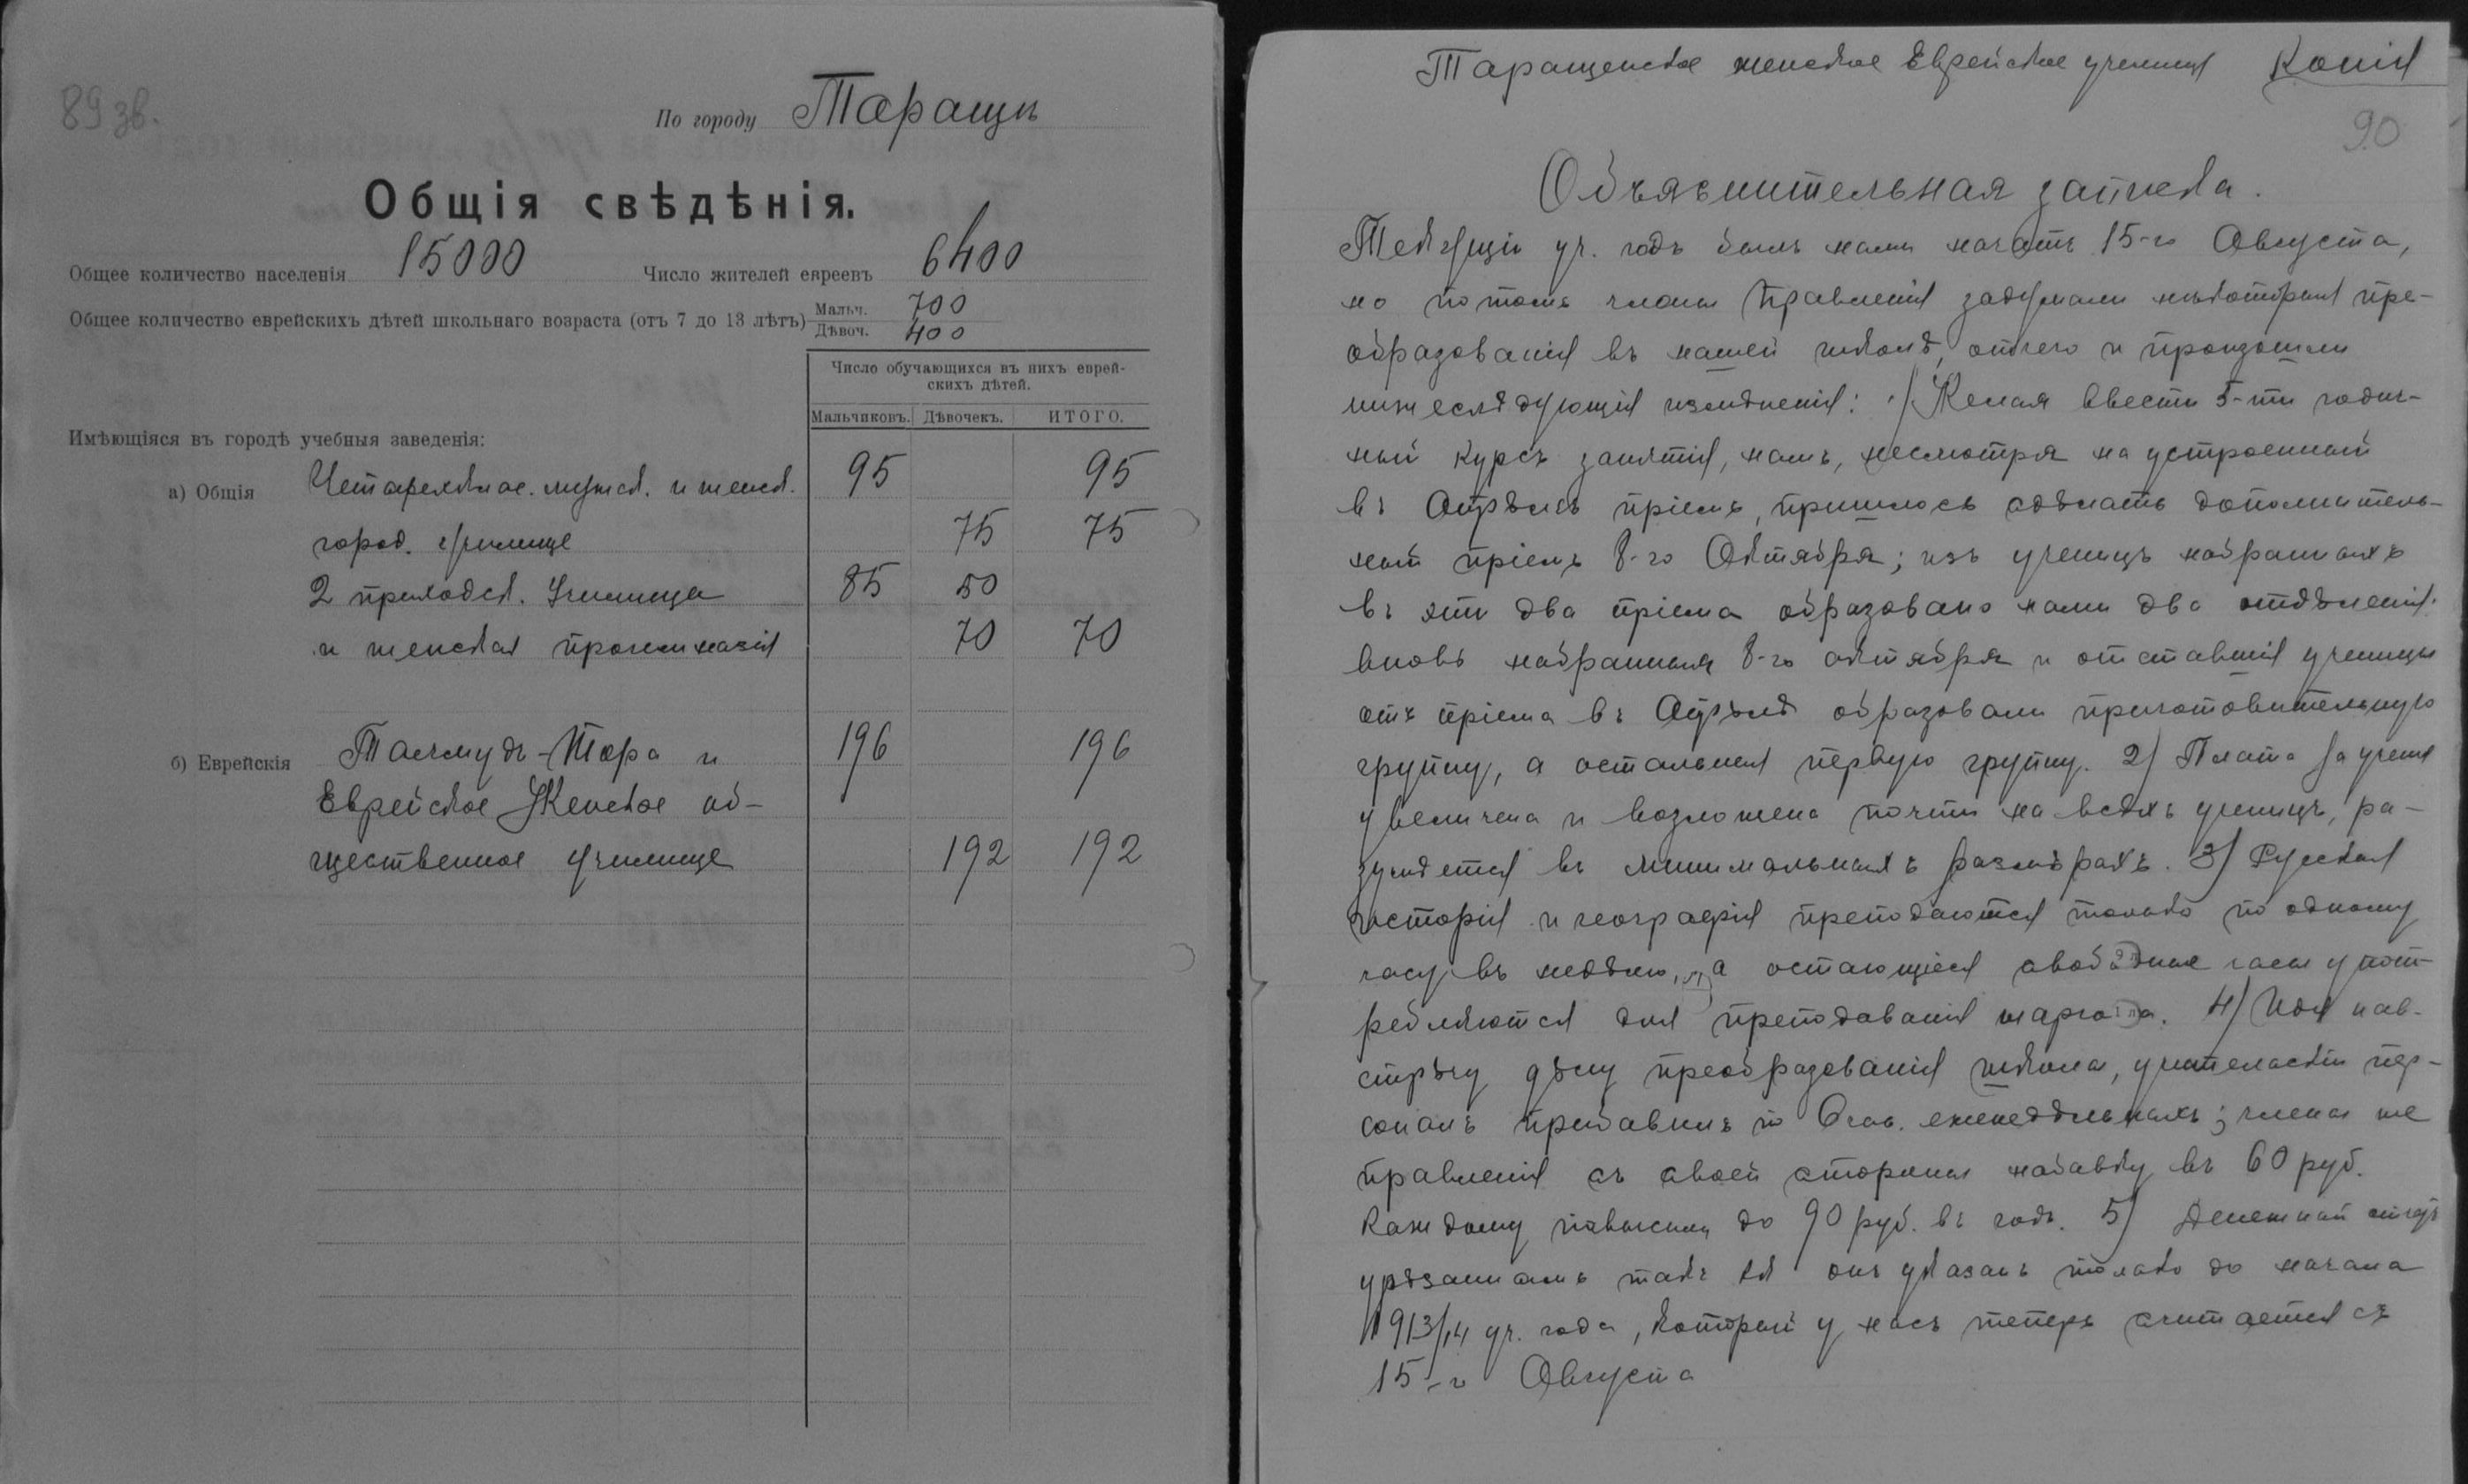 89 зв.
По городу Таращѣ
Общія свѣдѣнія.
Общее количество населенія 15000 Число жителей евреевъ 6400
Общее количество еврейскихъ дѣтей школьнаго возраста (отъ 7 до 13 лѣтъ) Мальч. 700
Дѣвоч. 400
Число обучающихся въ нихъ еврей-
скихъ дѣтей.
Мальчиковъ. Дѣвочекъ. ИТОГО.
Имѣющіяся въ городѣ учебныя заведенія:
а) Общія Четырехклас. мужск. и женск. 95 95
город. училище 75 75
2 приходск. Училища 85 50
и женская прогимназія 70 70
б) Еврейскія Талмудъ-Тора и 196 196
Еврейское Женское об-
щественное училище 192 192
Таращенское женское Еврейское училище Копія
90
Объяснительная записка.
Текущій уч. годъ былъ нами начатъ 15-го Августа,
но потомъ члены Правленія задумали нѣкоторыя пре-
образованія въ нашей школѣ, отчего и произошли
нижеслѣдующія измѣненія: 1) Желая ввести 5-ти годич-
ный курсъ занятія, намъ, несмотря на устроенный
въ Апрѣлѣ пріемъ, пришлось сдѣлать дополнитель-
ный пріемъ 8-го Октября; изъ ученицъ набранныхъ
въ эти два пріема образовано нами два отдѣленія:
вновь набранныя 8-го октября и отставшія ученицы
отъ пріема въ Апрѣлѣ образовали приготовительную
группу, а остальныя первую группу. 2) Плата за ученіе
увеличена и возложена почти на всѣхъ ученицъ, ра-
зумѣется въ минимальныхъ размѣрахъ. 3) Русская
исторія и географія преподаются только по одному
часу въ недѣлю, а остающіеся свободные часы упот-
ребляются для преподаванія жаргона. 4) Идя нав-
стрѣчу дѣлу преобразованія школы, учительскій пер-
соналъ прибавилъ по 8 час. еженедѣльныхъ; члены же
правленія съ своей стороны набавку въ 60 руб.
каждому повысили до 90 руб. въ годъ. 5) Денежный отчетъ
урѣзанный такъ какъ онъ указанъ только до начала
1913/14 уч. года, который у насъ теперь считается съ
15-го Августа